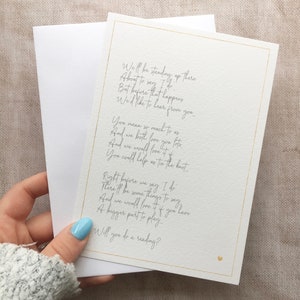 We'll be standing up there
About to say 'I do'
But before that happens
We'd like to hear from you

You mean so much to us
And we both love you lots
And we would love it if
You could help us tie the knot

Right before we say 'I do'
There'll be some things to say
And we would love it if you have
A bigger part to play

Will you do a reading?